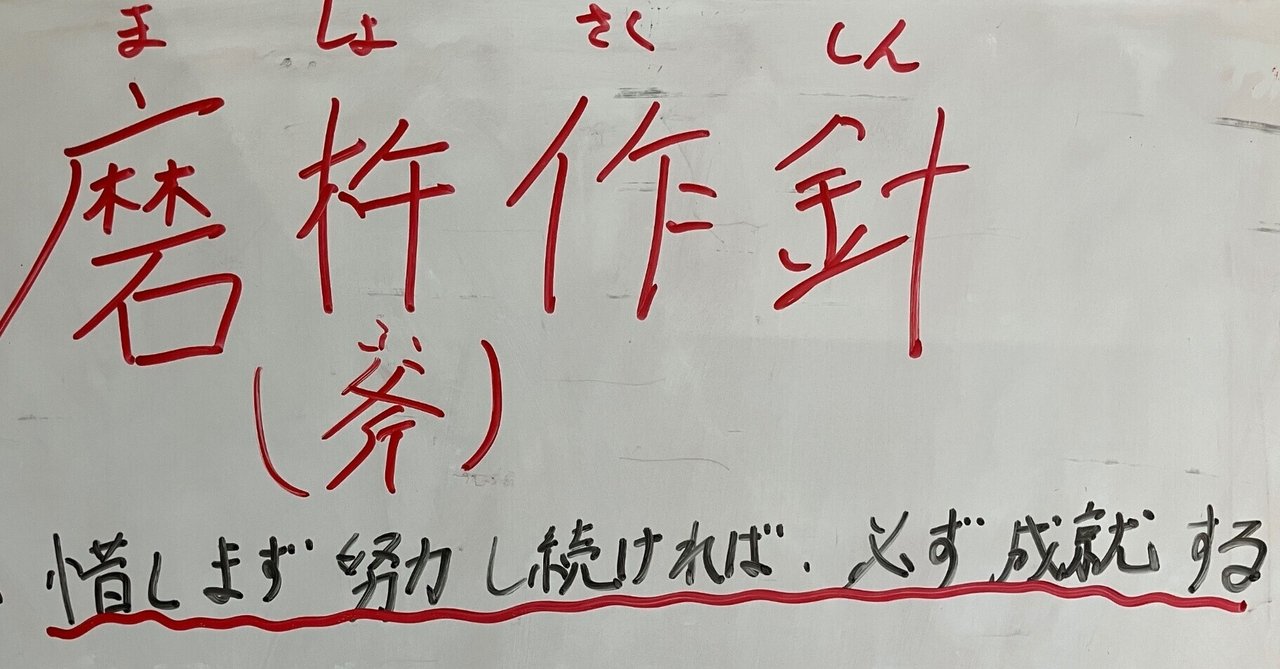 ま しょ さく しん
磨杵作針
ふ
(斧)
惜しまず努力し続ければ、必ず成就する